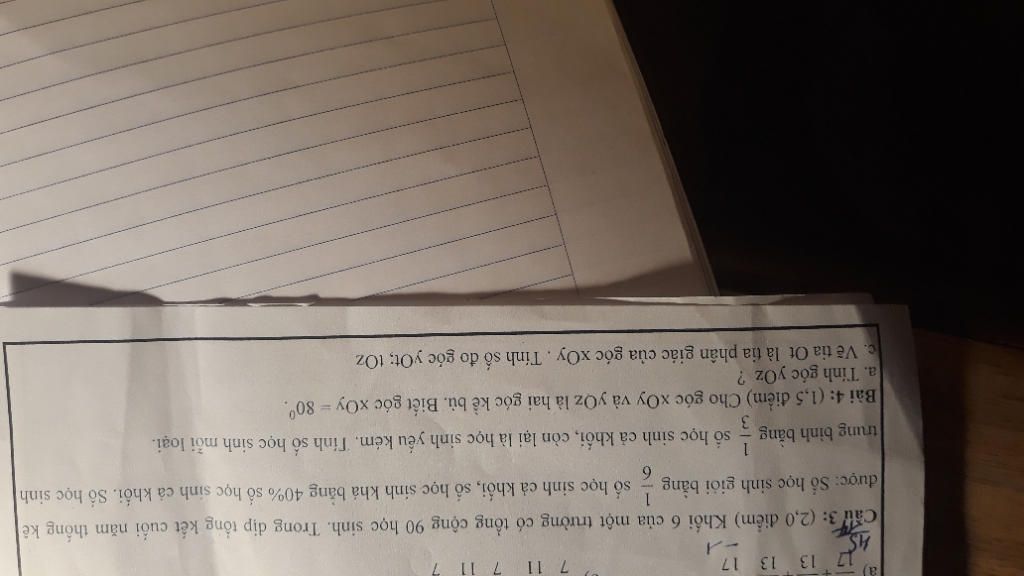 a) 17 13 13 17 7 11 7 11 7
-1
Câu 3: (2,0 điểm) Khối 6 của một trường có tổng cộng 90 học sinh. Trong dịp tổng kết cuối năm thống kê
được: Số học sinh giỏi bằng 1/6 số học sinh cả khối, số học sinh khá bằng 40% số học sinh cả khối. Số học sinh
trung bình bằng 1/3 số học sinh cả khối, còn lại là học sinh yếu kém. Tính số học sinh mỗi loại.
Bài 4: (1,5 điểm) Cho góc xOy và yOz là hai góc kề bù. Biết góc xOy = 80⁰.
a. Tính góc yOz ?
c. Vẽ tia Ot là tia phân giác của góc xOy . Tính số đo góc yOt; tOz